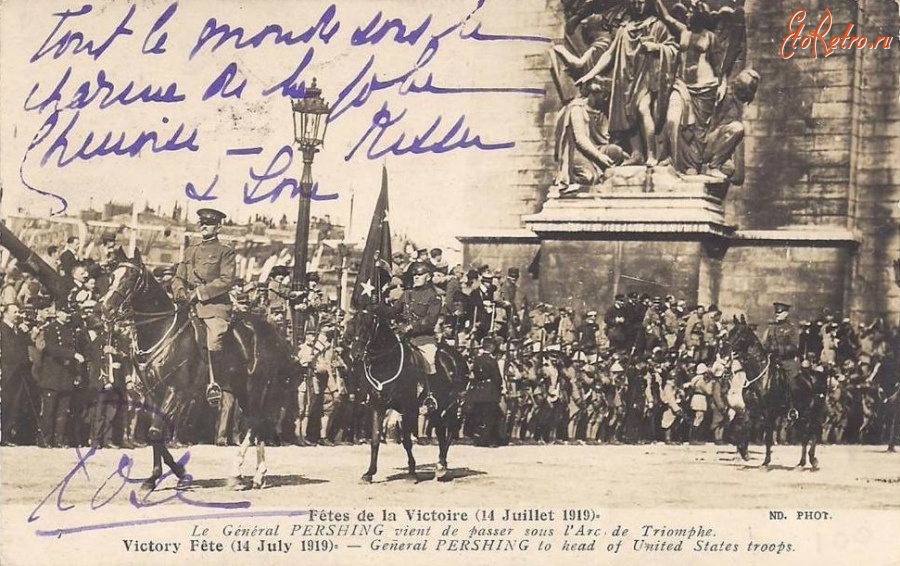 EtoRetro.ru
Tout le monde sous le
charme de la jolie
Kisses
& Love
Fêtes de la Victoire (14 Juillet 1919)=
ND. PHOT.
Le Général PERSHING vient de passer sous l'Arc de Triomphe.
Victory Fête (14 July 1919)= — General PERSHING to head of United States troops.